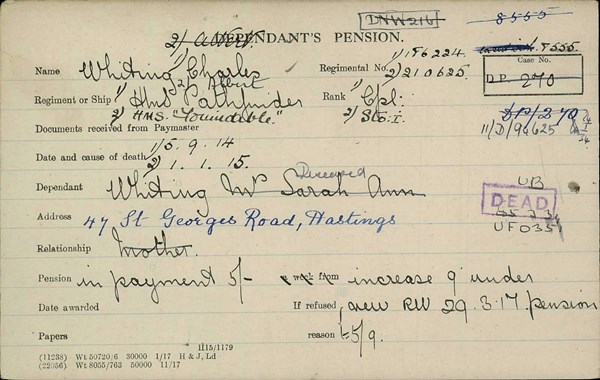 DNW216
8555
DEPENDANT'S PENSION.
8555.
Name Whiting 1/ Charles
2/ Albert
Regimental No. 1/186224.
2/210625.
Case No.
D.P. 270
Regiment or Ship 1/ HMS Pathfinder
2/ H.M.S. "Formidable."
Rank 1/ Cpl:
2/ Sto: I.
DP/270
11/D/96625
Documents received from Paymaster
Date and cause of death 1/ 5. 9. 14
2/ 1. 1. 15.
Deceased
Dependant Whiting Mrs Sarah Ann
UB
DEAD
Address 47 St Georges Road, Hastings
UF035
Relationship Mother.
Pension in payment 5/- a week from increase 9d under
Date awarded
If refused, new RW 29.3.17. pension
reason 5/9.
Papers
I115/1179
(11238) Wt 50720/6 30000 1/17 H & J, Ld
(22056) Wt 8055/763 50000 11/17